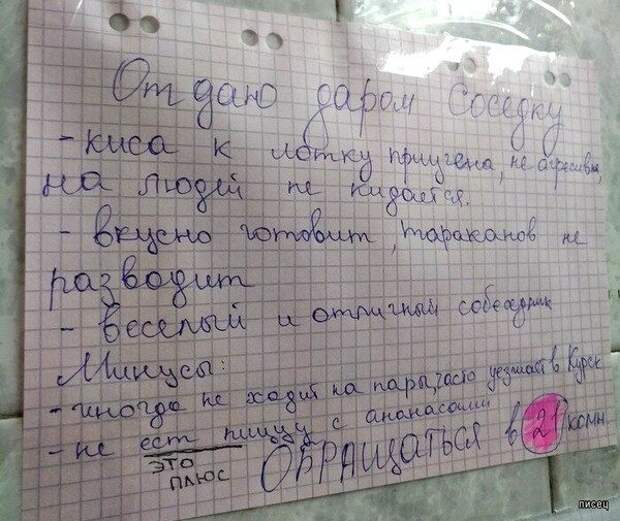 Отдаю даром соседку
- киса к лотку приучена, не агресивна,
на людей не кидается.
- вкусно готовит, тараканов не
разводит
- веселый и отличный собеседник
Минусы:
- иногда не ходит на пары, часто уезжает в Курск
- не ест пиццу с ананасами
это
плюс
ОБРАЩАТЬСЯ в 21 комн.
писец